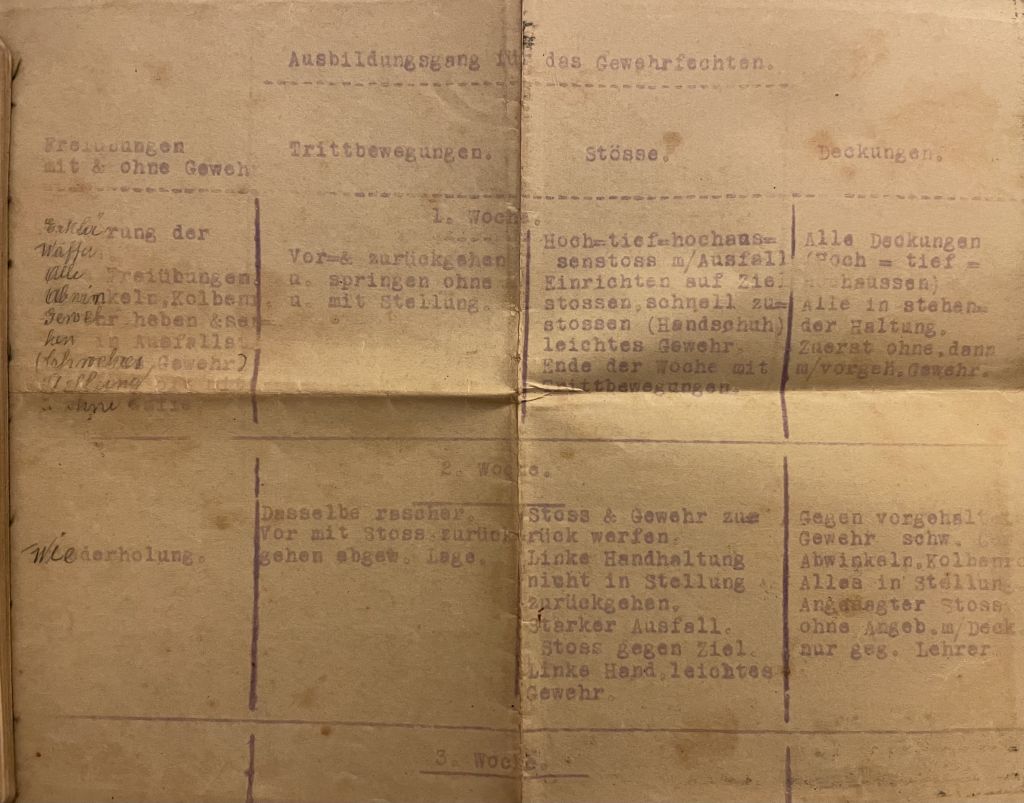 Ausbildungsgang für das Gewehrfechten.
Freiübungen
mit & ohne Gewehr
Trittbewegungen.
Stösse.
Deckungen.
1. Woche.
Erklärung der
Waffe.
Alle Freiübungen
Abwinkeln, Kolben
Gewehr heben & sen=
ken in Ausfallst
(schweres Gewehr)
Stellung mit
& ohne Waffe
Vor=& zurückgehen
u. springen ohne
u. mit Stellung.
Hoch=tief=hochaus=
senstoss m/Ausfall
Einrichten auf Ziel
stossen, schnell zu=
stossen (Handschuh)
leichtes Gewehr.
Ende der Woche mit
Trittbewegungen.
Alle Deckungen
(Hoch = tief =
hochaussen)
Alle in stehen=
der Haltung.
Zuerst ohne, dann
m/vorgeh. Gewehr.
2. Woche.
Wiederholung.
Dasselbe rascher.
Vor mit Stoss zurück
gehen abgew. Lage.
Stoss & Gewehr zu=
rück werfen.
Linke Handhaltung
nicht in Stellung
zurückgehen.
Starker Ausfall.
Stoss gegen Ziel.
Linke Hand, leichtes
Gewehr.
Gegen vorgehalt
Gewehr schw.
Abwinkeln, Kolben
Alles in Stellung
Angesagter Stoss
ohne Angeb. m/Deck
nur geg. Lehrer
3. Woche.